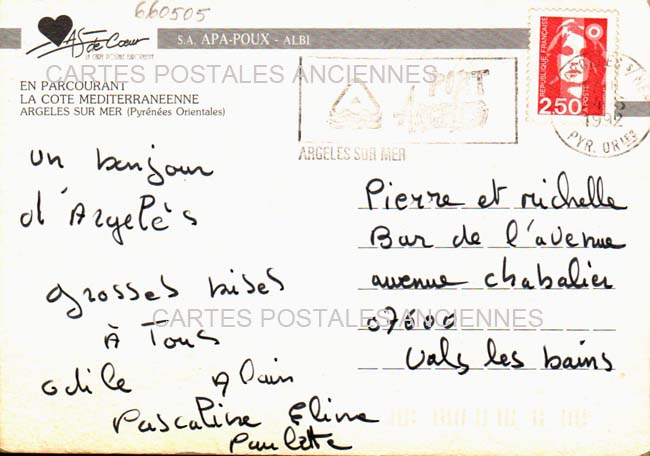 660505
AS de Cœur
S.A. APA-POUX - ALBI
CARTES POSTALES ANCIENNES
EN PARCOURANT
LA COTE MEDITERRANEENNE
ARGELES SUR MER (Pyrénées Orientales)
PORT
ARGELES
ARGELES SUR MER
REPUBLIQUE FRANÇAISE
2,50
1992
PYR. ORles
un bonjour
d'Argelès
grosses bises
à Tous
odile Alain
Pascaline Eline
Paulette
Pierre et Michelle
Bar de l'avenue
avenue chabalier
07600
Vals les bains
CARTES POSTALES ANCIENNES